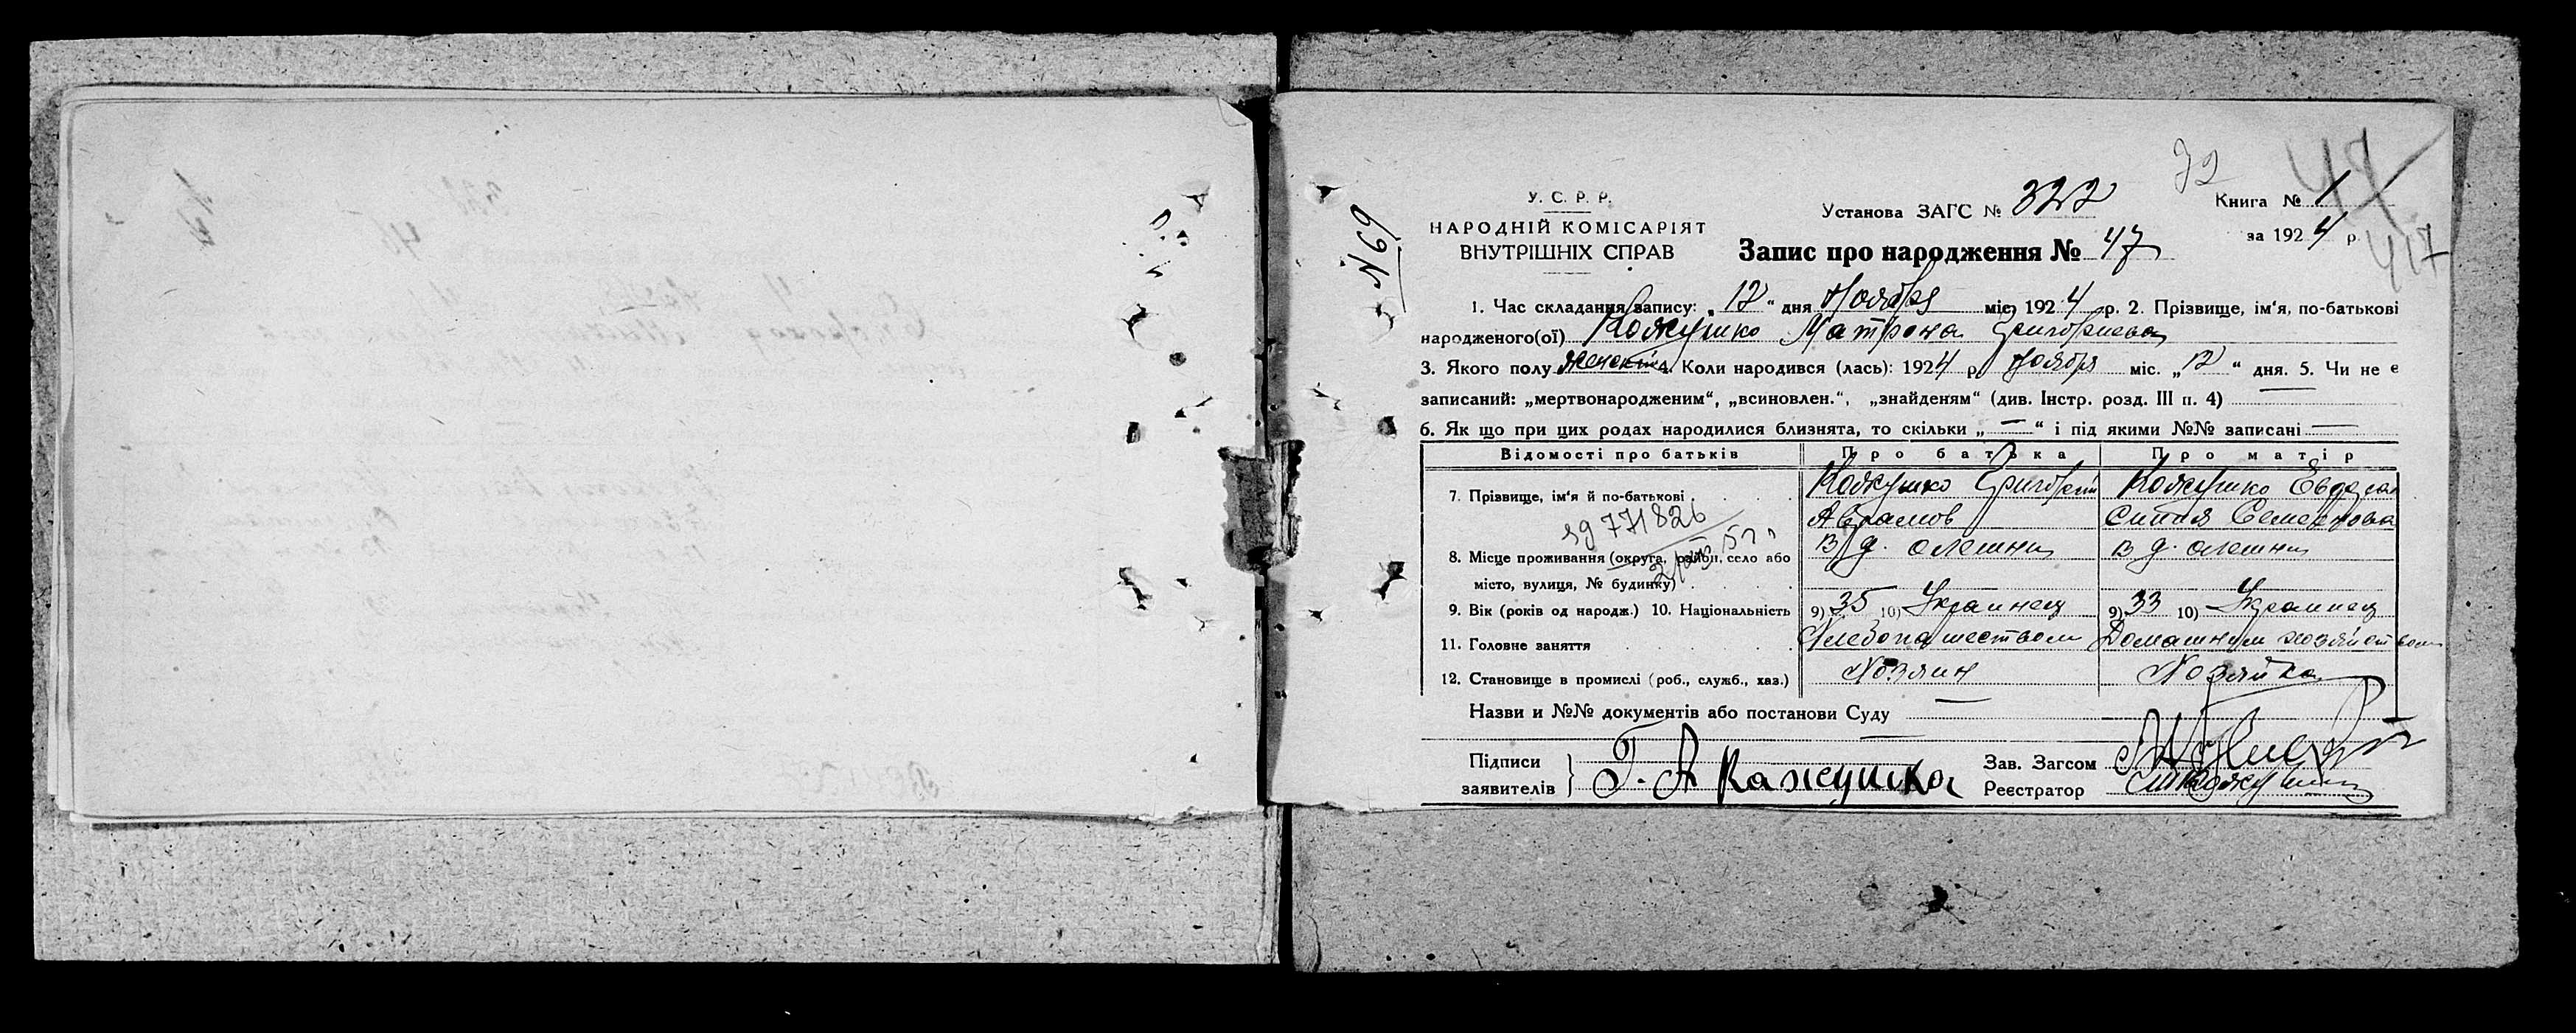 № 69
72
47
417
У. С. Р. Р.
НАРОДНІЙ КОМІСАРІЯТ
ВНУТРІШНІХ СПРАВ
Установа ЗАГС № 322
Книга № 1
за 1924 р.
Запис про народження № 47
1. Час складання запису: „12“ дня Ноября міс. 1924 р. 2. Прізвище, ім‘я, по-батькові
народженого(ої) Кожушко Матрона Григориева
3. Якого полу женский 4. Коли народився (лась): 1924 р. Ноября міс. „12“ дня. 5. Чи не є
записаний: „мертвонародженим“, „всиновлен.“, „знайденям“ (див. Інстр. розд. III п. 4) —
6. Як що при цих родах народилися близнята, то скільки „—“ і під якими №№ записані —
Відомості про батьків Про батька Про матір
7. Прізвище, ім‘я й по-батькові . . . Кожушко Григорий Кожушко Евдо
Аврамов Семенова
771826
8. Місце проживання (округа, район, село або В д. Олешни В д. Олешни
місто, вулиця, № будинку) . . .
9. Вік (років од народж.) 10. Національність 9) 35 10) Украинец 9) 33 10) Украинец
11. Головне заняття . . . Хлебопашеством Домашним хозяйством
12. Становище в промислі (роб., служб., хаз.) Хозяин Хозяйка
Назви и №№ документів або постанови Суду —
Підписи
заявителів } Г. А Кажушка
Зав. Загсом
Реєстратор